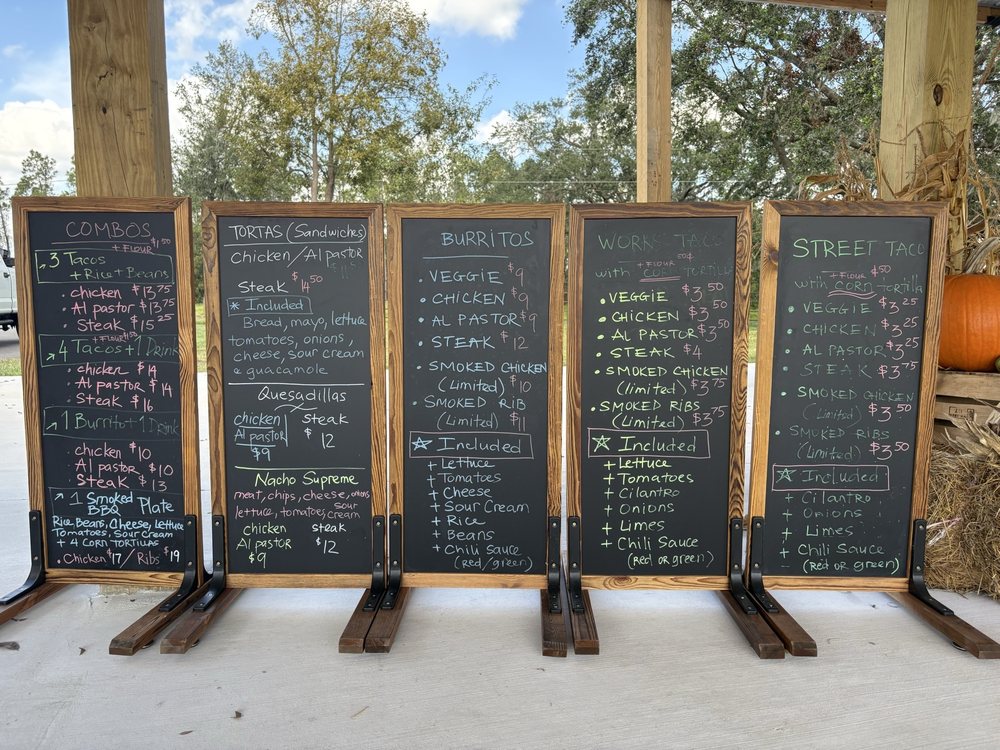 COMBOS
+ FLOUR $1.50
→ 3 Tacos
+ Rice + Beans
· chicken $13.75
· Al pastor $13.75
· Steak $15.25
→ 4 Tacos + 1 Drink
· chicken $14
· Al pastor $14
· Steak $16
→ 1 Burrito + 1 Drink
· chicken $10
· Al pastor $10
· Steak $13
→ 1 Smoked
BBQ Plate
Rice, Beans, Cheese, Lettuce
Tomatoes, Sour Cream
+ 4 CORN TORTILLAS
· Chicken $17 / Ribs $19
TORTAS (Sandwiches)
Chicken / Al pastor
Steak $14.50
* Included
Bread, mayo, lettuce
tomatoes, onions,
cheese, sour cream
e guacamole
Quesadillas
chicken
Al pastor
$9
Steak
$12
Nacho Supreme
meat, chips, cheese, onions
lettuce, tomatoes, sour cream
chicken
Al pastor
$9
steak
$12
BURRITOS
• VEGGIE $9
• CHICKEN $9
• AL PASTOR $9
• STEAK $12
• SMOKED CHICKEN
(Limited) $10
• SMOKED RIB
(Limited) $11
☆ Included
+ Lettuce
+ Tomatoes
+ Cheese
+ Sour Cream
+ Rice
+ Beans
+ Chili Sauce
(red/green)
WORKS TACO
+ FLOUR 50¢
with CORN TORTILLA
• VEGGIE $3.50
• CHICKEN $3.50
• AL PASTOR $3.50
• STEAK $4
• SMOKED CHICKEN
(limited) $3.75
• SMOKED RIBS
(Limited) $3.75
☆ Included
+ Lettuce
+ Tomatoes
+ Cilantro
+ Onions
+ Limes
+ Chili Sauce
(red or green)
STREET TACO
+ FLOUR $.50
with CORN TORTILLA
• VEGGIE $3.25
• CHICKEN $3.25
• AL PASTOR $3.25
• STEAK $3.75
• SMOKED CHICKEN
(Limited) $3.50
• SMOKED RIBS
(LIMITED) $3.50
☆ Included
+ Cilantro
+ Onions
+ Limes
+ Chili Sauce
(red or green)